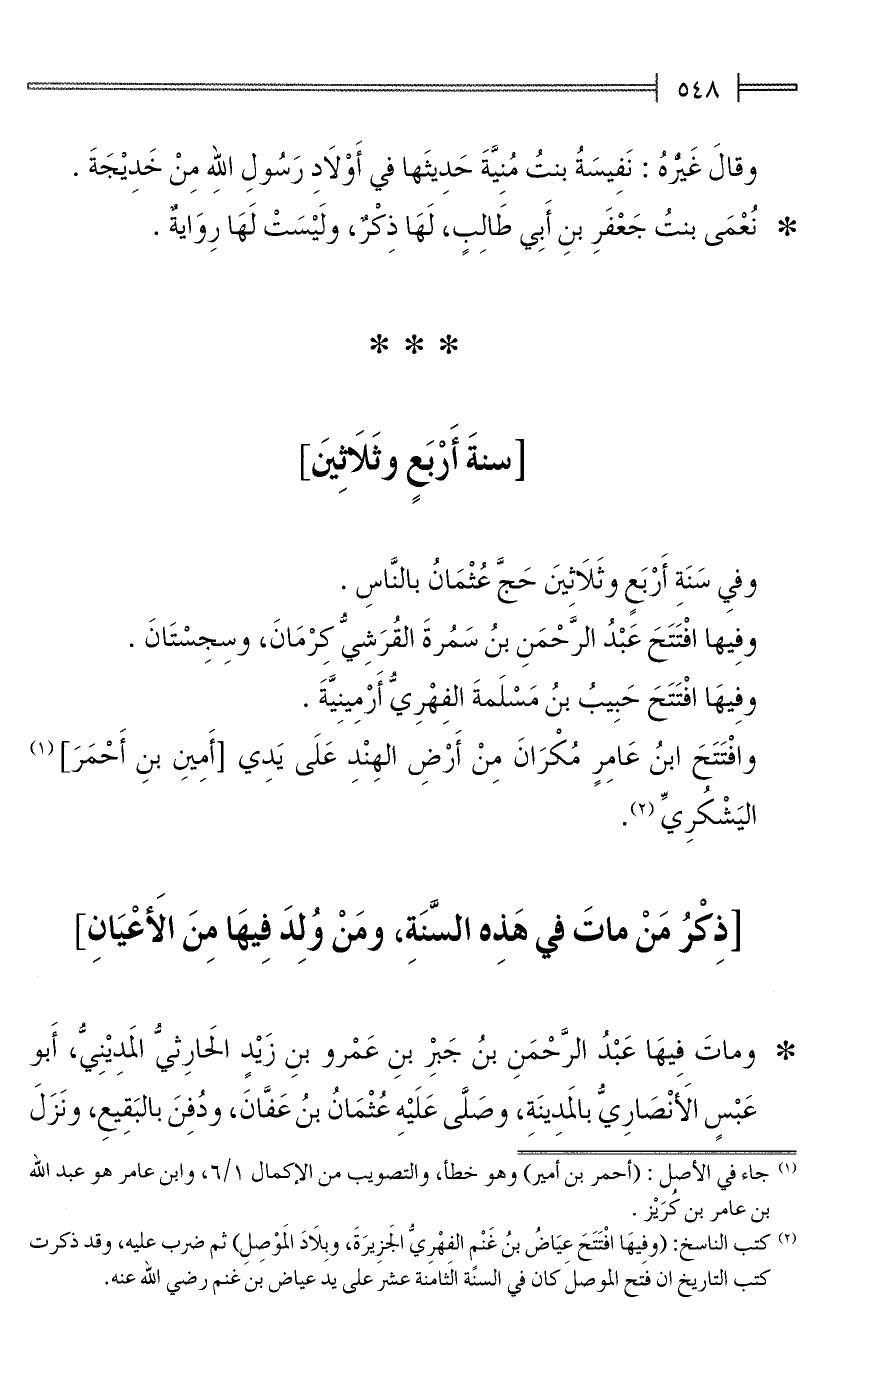 ٥٤٨
وقالَ غَيْرُهُ : نَفِيسَةُ بنتُ مُنيَّةَ حَدِيثَها في أَوْلَادِ رَسُولِ اللهِ مِنْ خَدِيْجَةَ .
* نُعْمَى بنتُ جَعْفَرِ بنِ أَبي طَالِبٍ، لَهَا ذِكْرٌ، ولَيْسَتْ لَهَا رِوَايةٌ .
* * *
[سنةَ أَرْبَعٍ وثَلَاثِينَ]
وفي سَنَةِ أَرْبَعٍ وثَلَاثِينَ حَجَّ عُثْمَانُ بالنَّاسِ .
وفِيها افْتَتَحَ عَبْدُ الرَّحْمَنِ بنُ سَمُرةَ القُرَشِيُّ كِرْمَانَ، وسجِسْتَانَ .
وفيهَا افْتَتَحَ حَبِيبُ بنُ مَسْلَمةَ الفِهْرِيُّ أَرْمِينِيَّةَ .
وافْتَتَحَ ابنُ عَامِرٍ مُكْرَانَ مِنْ أَرْضِ الهِنْدِ عَلَى يَدِي [أَمِينِ بنِ أَحْمَرَ] (١)
اليَشْكُرِيِّ (٢).
[ذِكْرُ مَنْ ماتَ في هَذِه السَّنَةِ، ومَنْ وُلِدَ فِيهَا مِنَ الأَعْيَانِ]
* وماتَ فِيهَا عَبْدُ الرَّحْمَنِ بنُ جَبْرِ بنِ عَمْرو بنِ زَيْدٍ الحَارثيُّ المَدِيْنِيُّ، أَبو
عَبْسٍ الأَنْصَارِيُّ بالمَدِينَةِ، وصَلَّى عَلَيْهِ عُثْمَانُ بنُ عَفَّانَ، ودُفِنَ بالبَقِيعِ، ونَزَلَ
(١) جاء في الأصل : (أحمر بن أمير) وهو خطأ، والتصويب من الإكمال ٦/١، وابن عامر هو عبد الله
بن عامر بن كُرَيْز .
(٢) كتب الناسخ: (وفيهَا افْتَتَحَ عيَاضُ بنُ غَنْمٍ الفِهْرِيُّ الجَزِيرَةَ، وبِلَادَ المَوْصِلِ) ثم ضرب عليه، وقد ذكرت
كتب التاريخ ان فتح الموصل كان في السنة الثامنة عشر على يد عياض بن غنم رضي الله عنه.